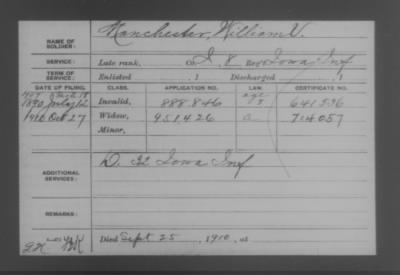 NAME OF SOLDIER: Manchester, William V.
SERVICE: Late rank, Co. I, 8 Reg't Iowa Inf
TERM OF SERVICE: Enlisted , 1 Discharged , 1
DATE OF FILING. CLASS. APPLICATION NO. LAW. CERTIFICATE NO.
1907 age
1890 July 12 Invalid, 888.846 641.536
1910 Oct 27 Widow, 951.426 a 714057
Minor,
ADDITIONAL SERVICES: D. 22 Iowa Inf
REMARKS:
Died Sept 25, 1910, at